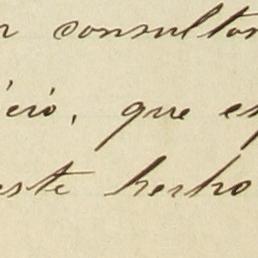 r consultor
icio, que es
este hecho